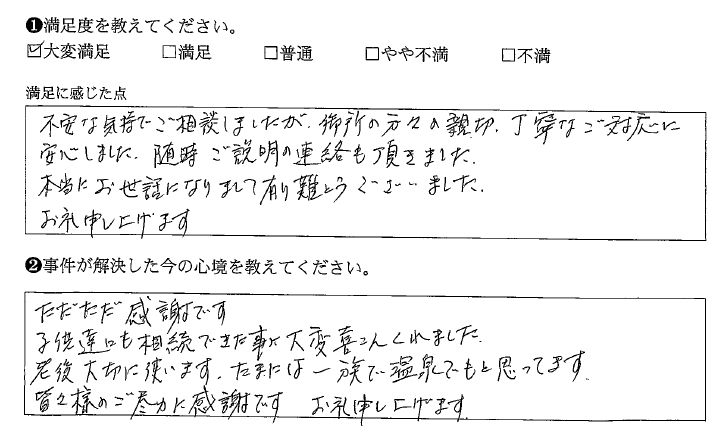 ❶満足度を教えてください。
☑大変満足 □満足 □普通 □やや不満 □不満
満足に感じた点
不安な気持でご相談しましたが、御所の方々の親切、丁寧なご対応に
安心しました。随時ご説明の連絡も頂きました。
本当にお世話になりまして有り難とうございました。
お礼申し上げます
❷事件が解決した今の心境を教えてください。
ただただ感謝です
子供達にも相続できた事が大変喜こんくれました。
老後大切に使います。たまには一族で温泉でもと思ってます。
皆々様のご尽力に感謝です お礼申し上げます